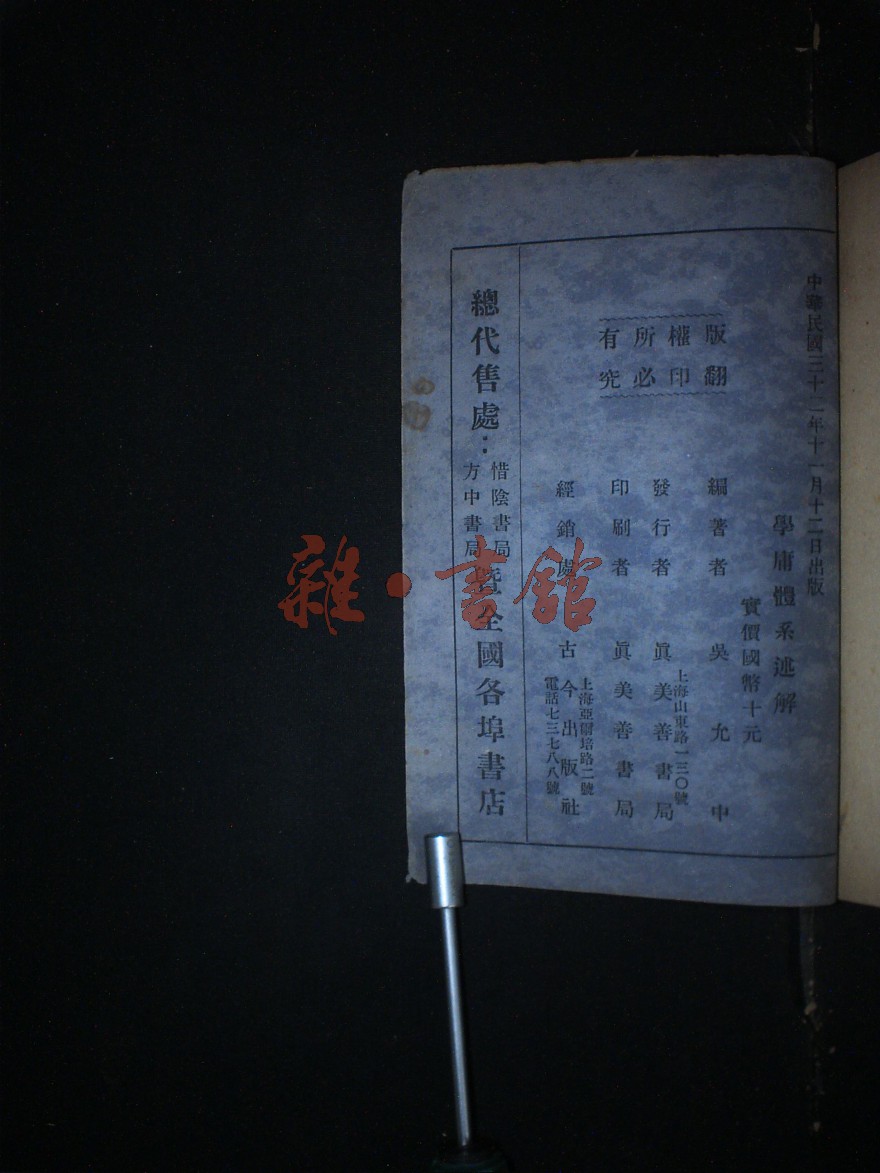 中華民國三十二年十一月十二日出版
學庸體系述解
實價國幣十元
版權所有
翻印必究
編著者 吳允中
上海山東路一三〇號
發行者 眞美善書局
印刷者 眞美善書局
上海亞爾培路二號
經銷處 古今出版社
電話七三七八八號
總代售處：惜陰書局
方中書局
暨全國各埠書店
雜·書館